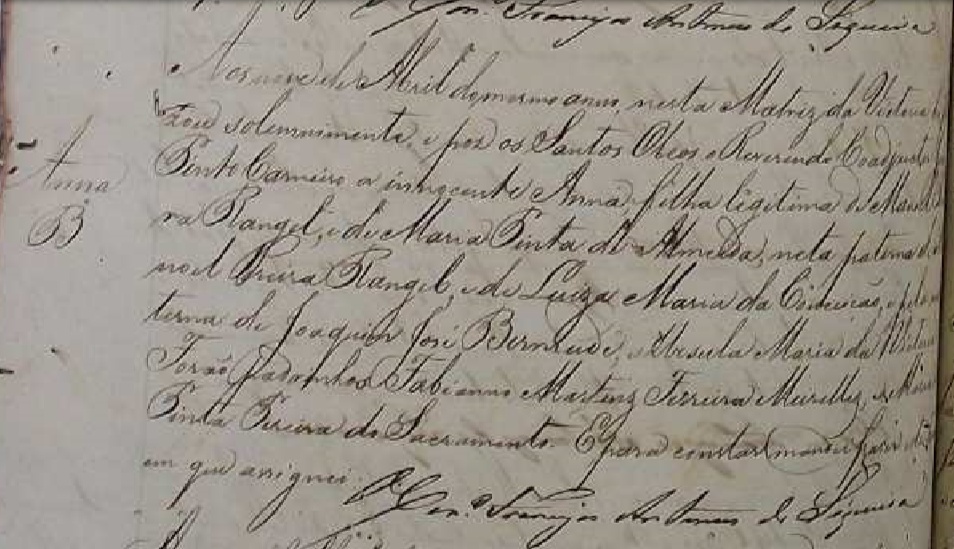 Con.º Francisco Antunes de Siqueira
Aos nove de Abril do mesmo anno, nesta Matriz da Victoria
zou solemnemente, e poz os Santos Oleos o Reverendo Coadjuctor
Anna
Pinto Carneiro a innocente Anna, filha legitima de Manoel
B
ra Rangel, e de Maria Pinta de Almeida, neta paterna de
noel Pereira Rangel, e de Luiza Maria da Conceição, e pela
terna de Joaquim José Bermude, e Ursula Maria da Victoria
Forão padrinhos Fabianno Martins Ferreira Meirelles, e Maria
Pinta Pereira do Sacramento. E para constar mandei fazer
em que assignei.
Con.º Francisco Antunes de Siqueira